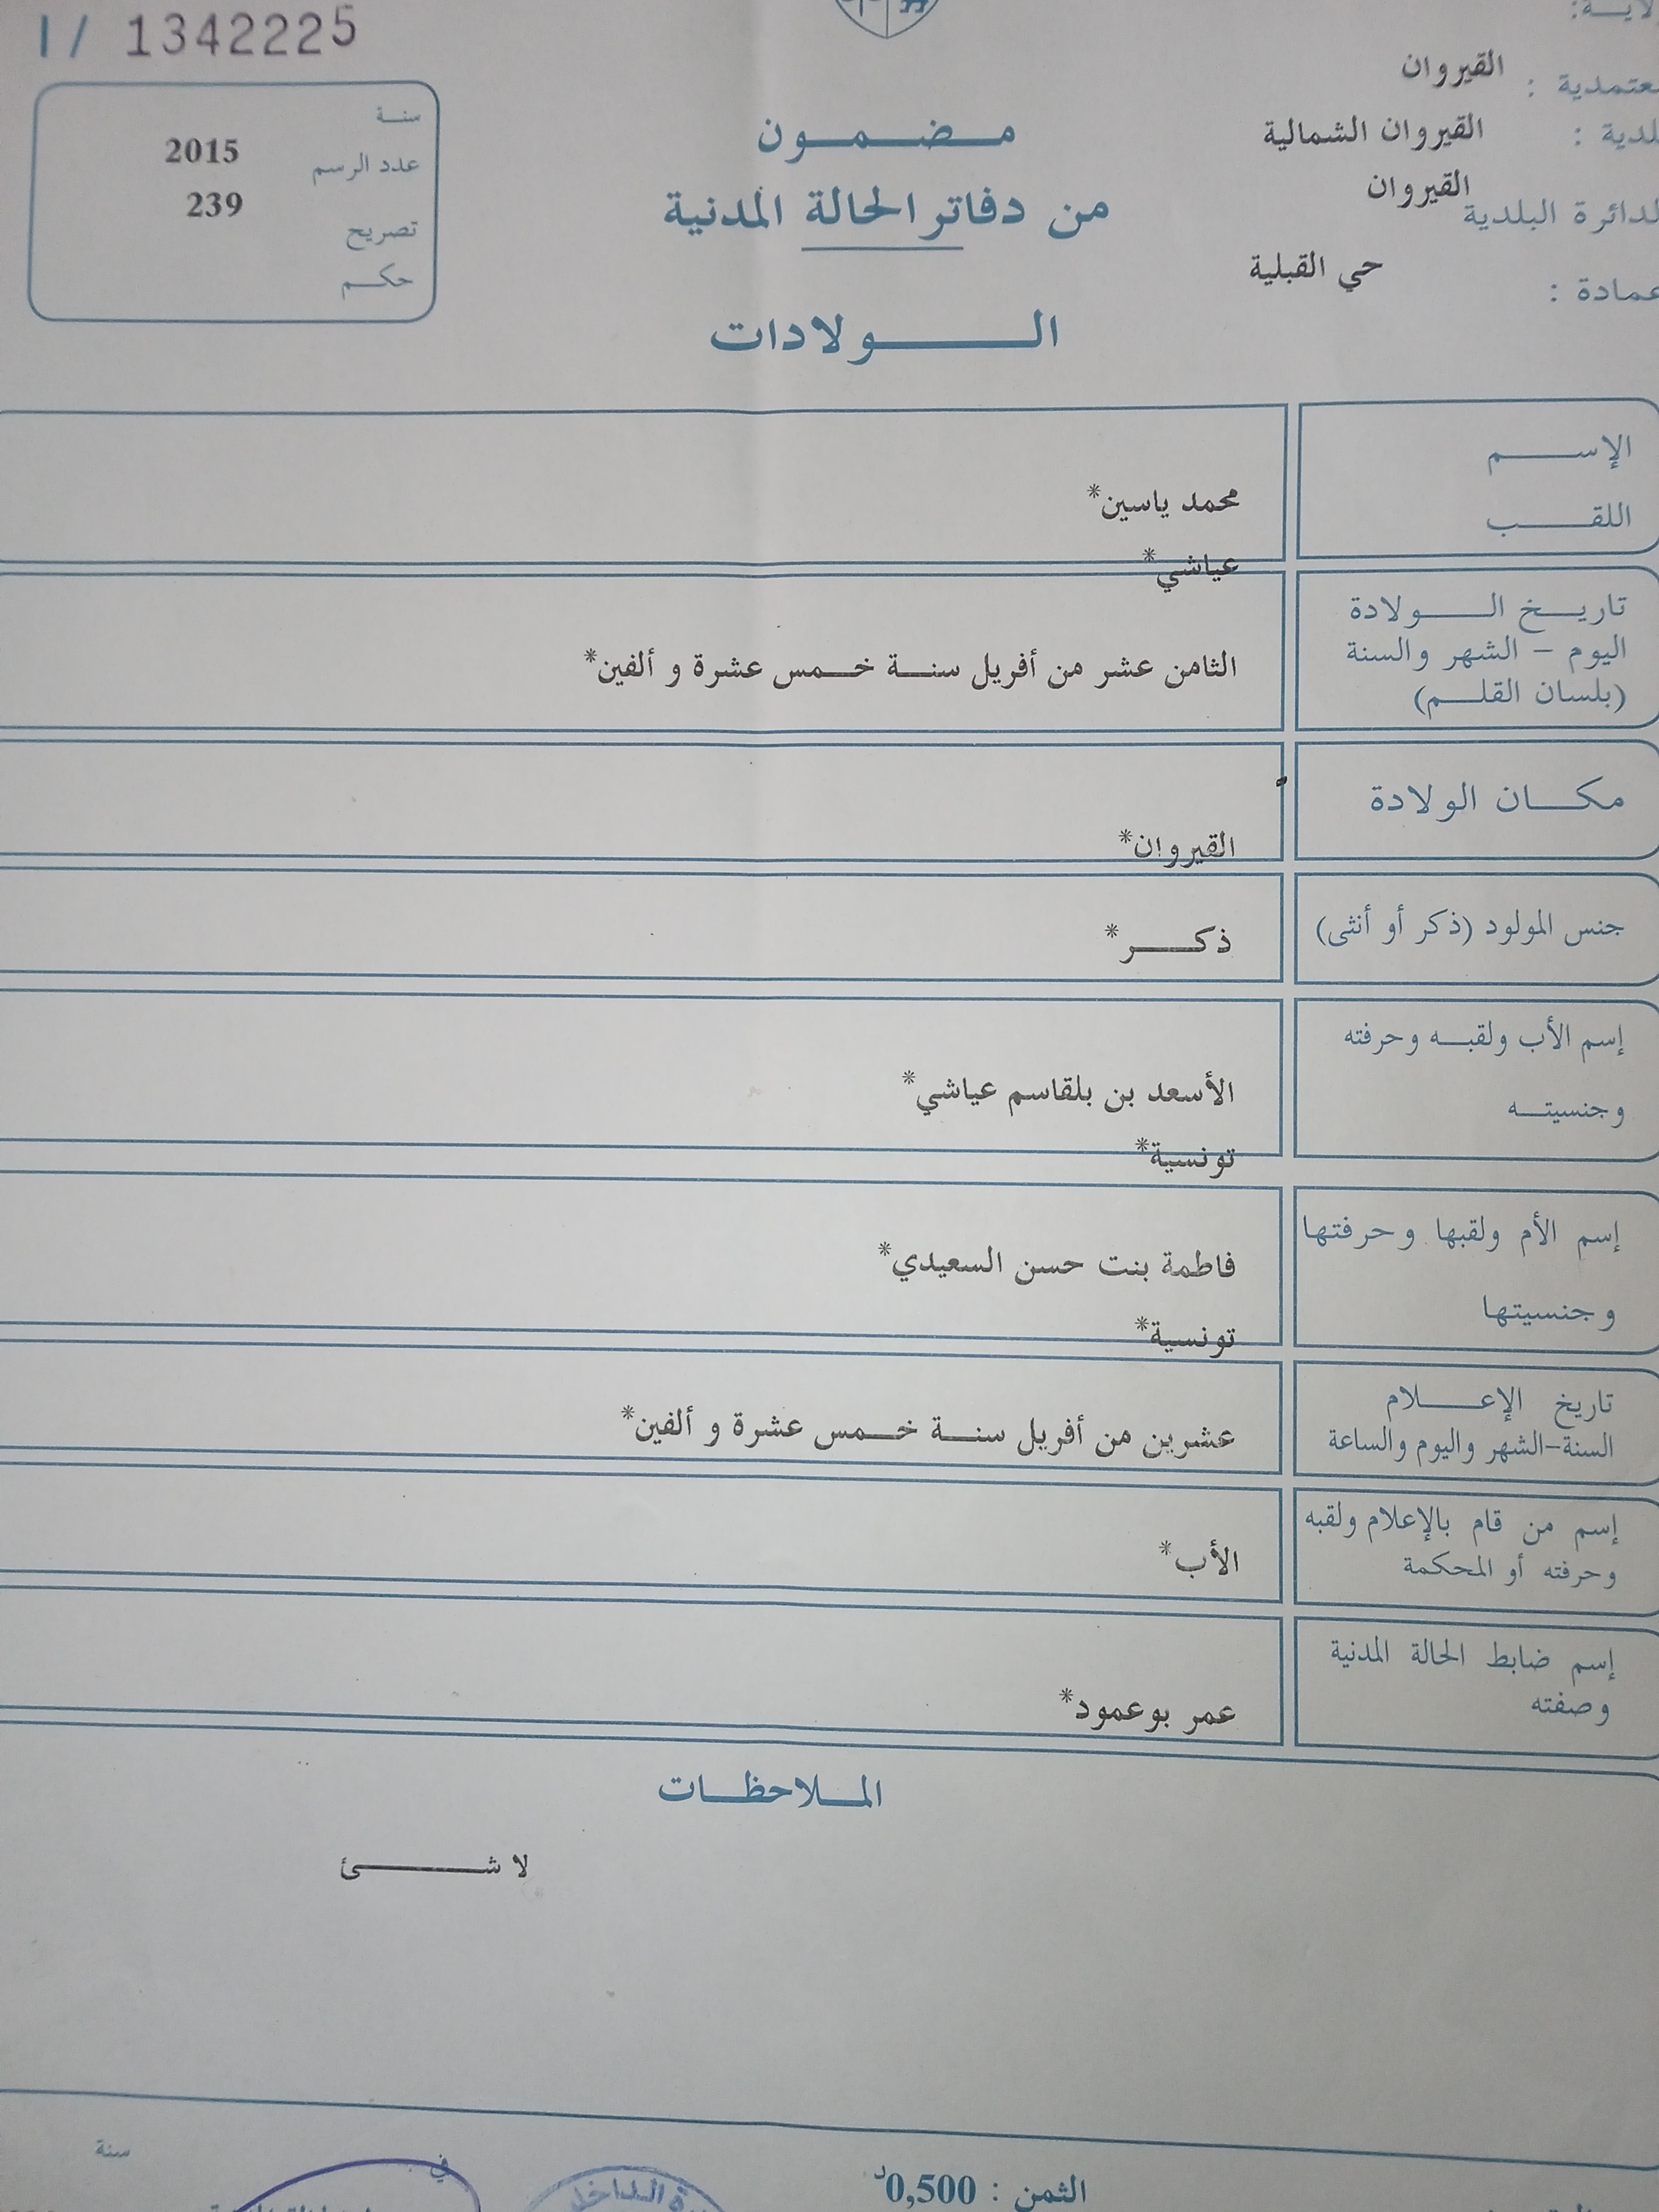 I/ 1342225
القيروان
القيروان الشمالية
القيروان
حي القبلية
عمادة :
الدائرة البلدية
سنة
2015
عدد الرسم
239
تصريح
حكم
مضمون
من دفاتر الحالة المدنية
الولادات
الإسم
محمد ياسين*
اللقب
عياشي*
تاريخ الولادة
اليوم - الشهر والسنة
(بلسان القلم)
الثامن عشر من أفريل سنة خمس عشرة و ألفين*
مكان الولادة
القيروان*
جنس المولود (ذكر أو أنثى)
ذكر*
إسم الأب ولقبه وحرفته
الأسعد بن بلقاسم عياشي*
وجنسيته
تونسية*
إسم الأم ولقبها وحرفتها
فاطمة بنت حسن السعيدي*
وجنسيتها
تونسية*
تاريخ الإعلام
السنة-الشهر واليوم والساعة
عشرين من أفريل سنة خمس عشرة و ألفين*
إسم من قام بالإعلام ولقبه
وحرفته أو المحكمة
الأب*
إسم ضابط الحالة المدنية
وصفته
عمر بوعمود*
الملاحظات
لا شئ
سنة
في
الثمن : 0,500د